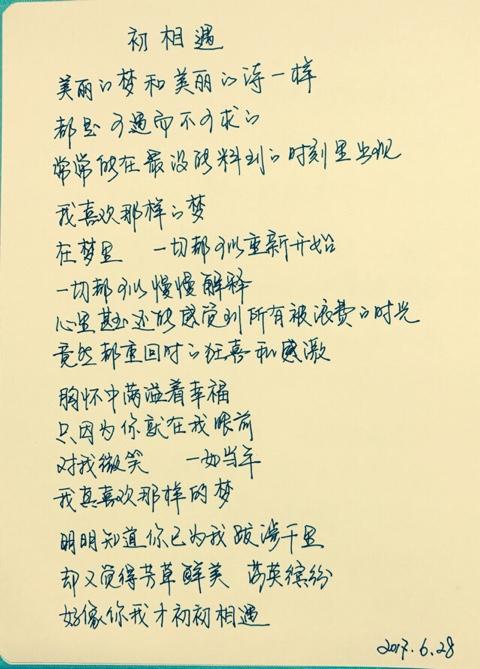 初相遇
美丽的梦和美丽的诗一样
都是可遇而不可求的
常常能在最没能料到的时刻里出现
我喜欢那样的梦
在梦里 一切都可以重新开始
一切都可以慢慢解释
心里甚至还能感觉到所有被浪费的时光
竟然都重回时的狂喜和感激
胸怀中满溢着幸福
只因为你就在我眼前
对我微笑 一如当年
我真喜欢那样的梦
明明知道你已为我跋涉千里
却又觉得芳草鲜美 落英缤纷
好像你我才初初相遇
2017.6.28